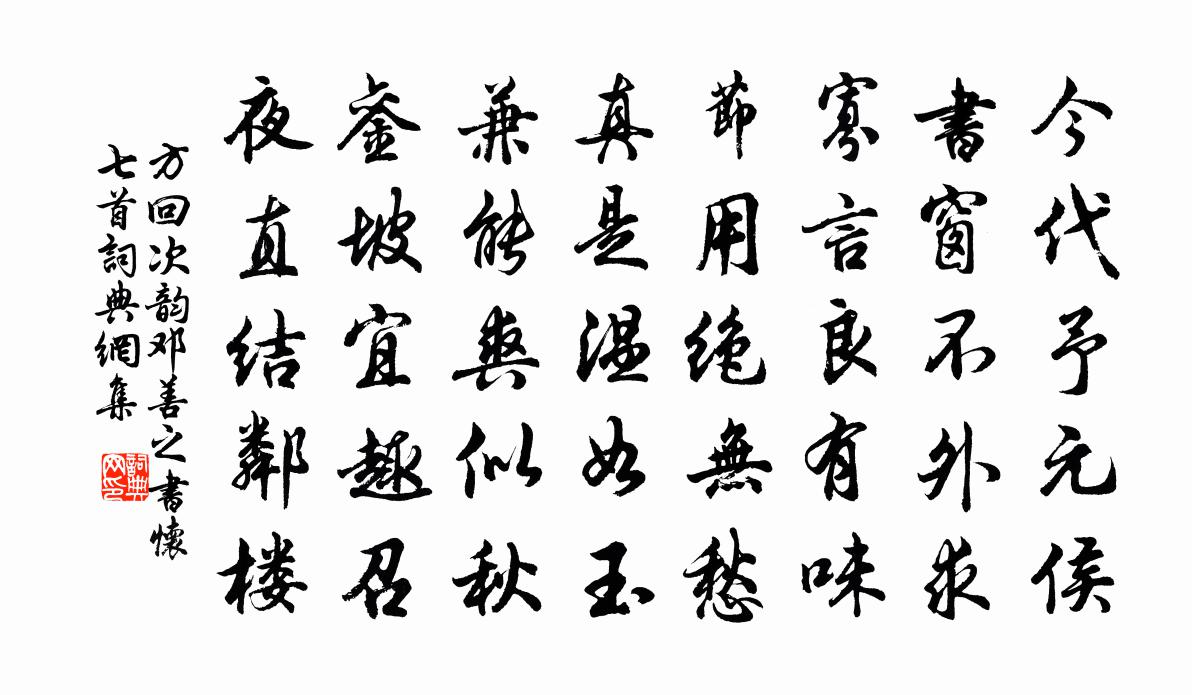 今代予元侯
書窗不外求
寡言良有味
節用绝無愁
真是温如玉
兼能爽似秋
銮坡宜趣召
夜直结鄰楼
方回次韵邓善之書懷
七首詞典網集
詞典网印